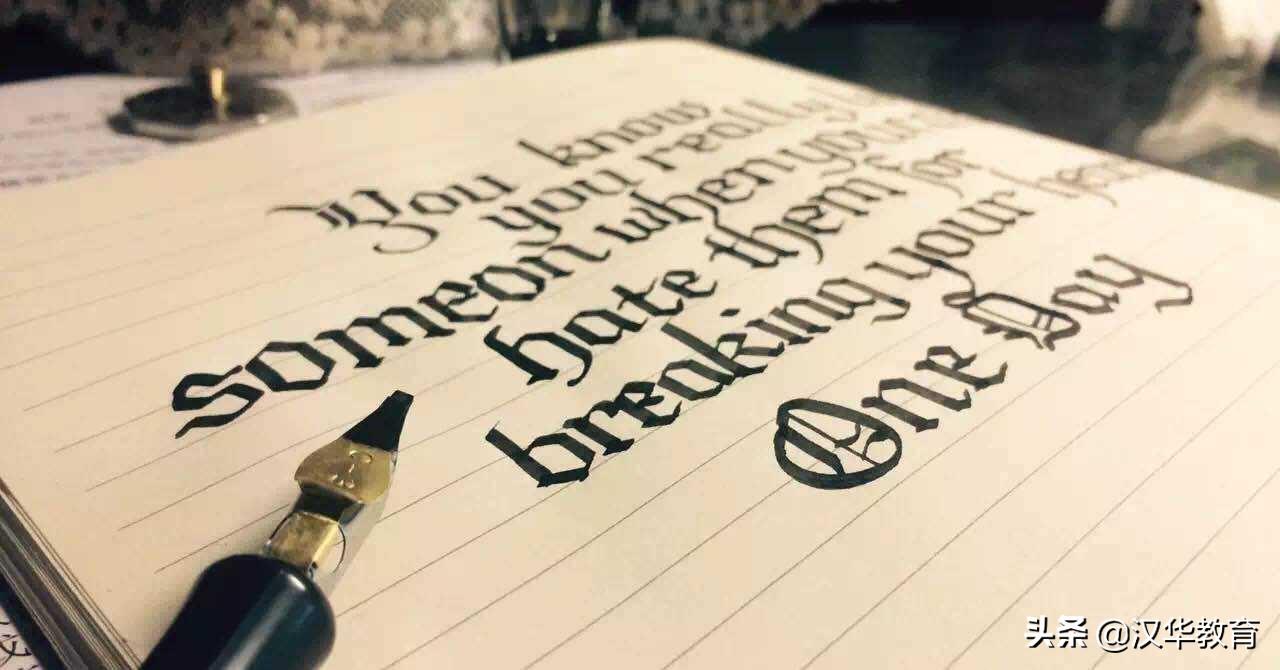 You know
you really
someon when you
hate them for
breaking your
One Day
头条 @汉华教育